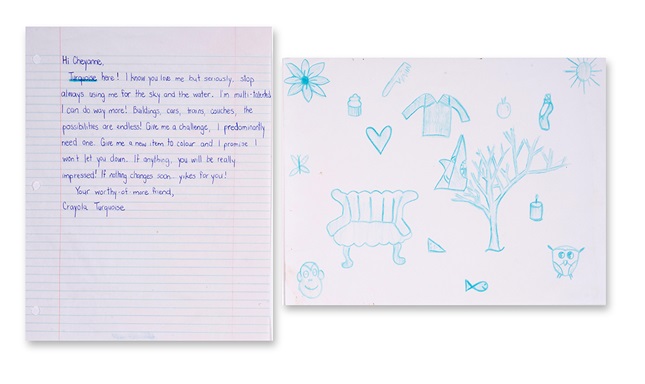 Hi Cheyanne,
Turquoise here! I know you love me but seriously, stop
always using me for the sky and the water. I'm multi-talented
I can do way more! Buildings, cars, trains, couches, the
possibilities are endless! Give me a challenge, I predominantly
need one. Give me a new item to colour and I promise I
won't let you down. If anything, you will be really
impressed! If nothing changes soon... yikes for you!
Your worthy-of-more friend,
Crayola Turquoise